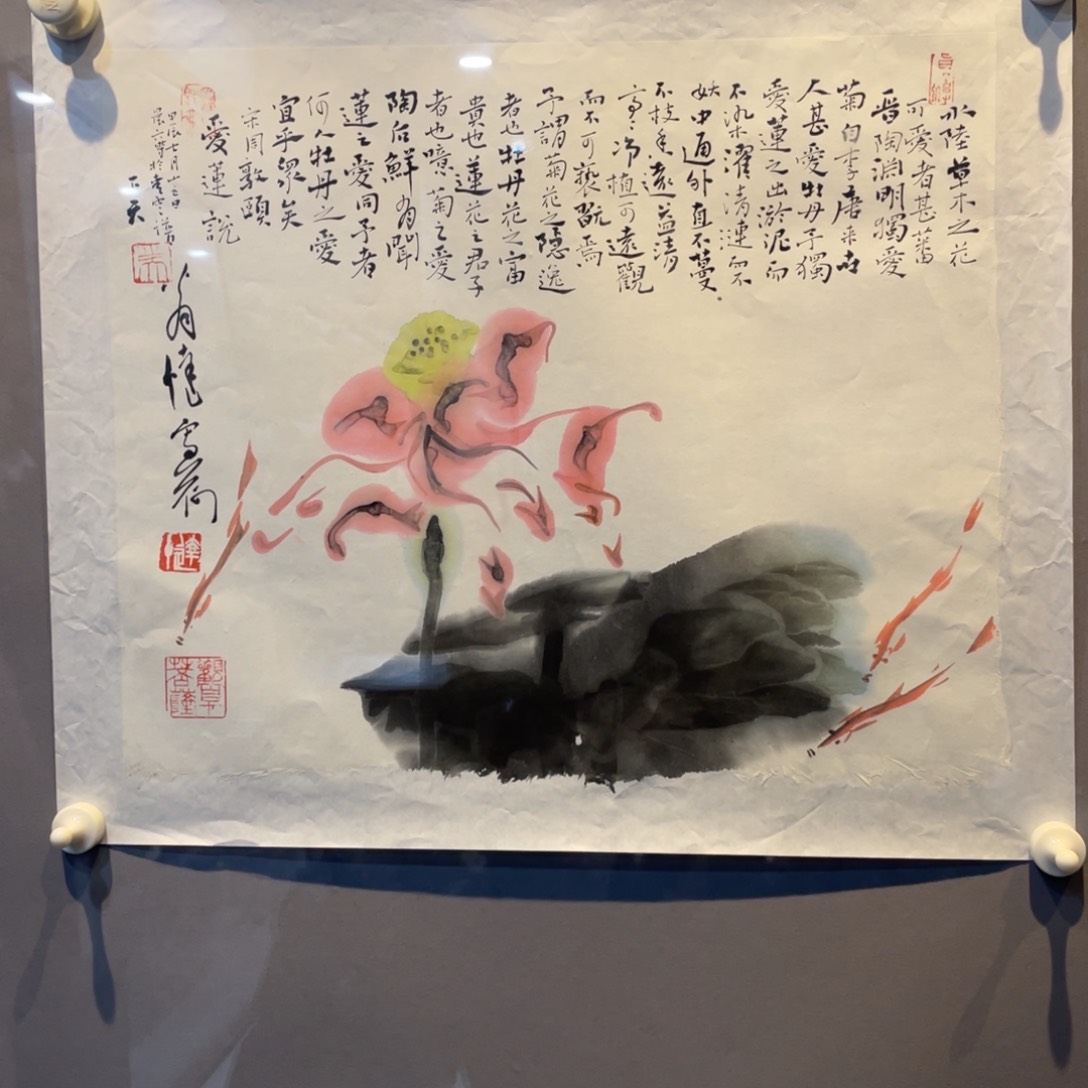 水陸草木之花
可愛者甚蕃
晉陶淵明獨愛
菊自李唐來世
人甚愛牡丹予獨
愛蓮之出淤泥而
不染濯清漣而不
妖中通外直不蔓
不枝香遠益清
亭〻净植可遠觀
而不可褻翫焉
予謂菊花之隱逸
者也牡丹花之富
貴也蓮花之君子
者也噫菊之愛
陶后鮮有聞
蓮之愛同予者
何人牡丹之愛
宜乎眾矣
宋周敦頤
愛蓮說
甲辰七月
寫荷
菩薩